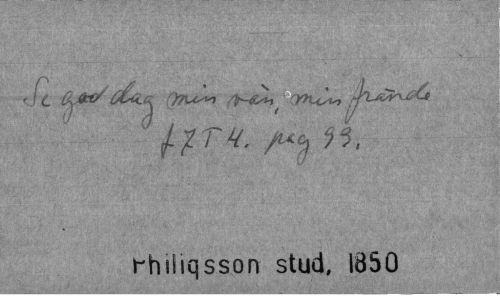 Se god dag min vän, min frände
f 7 T 4. pag 99.
Philiqsson stud, 1850